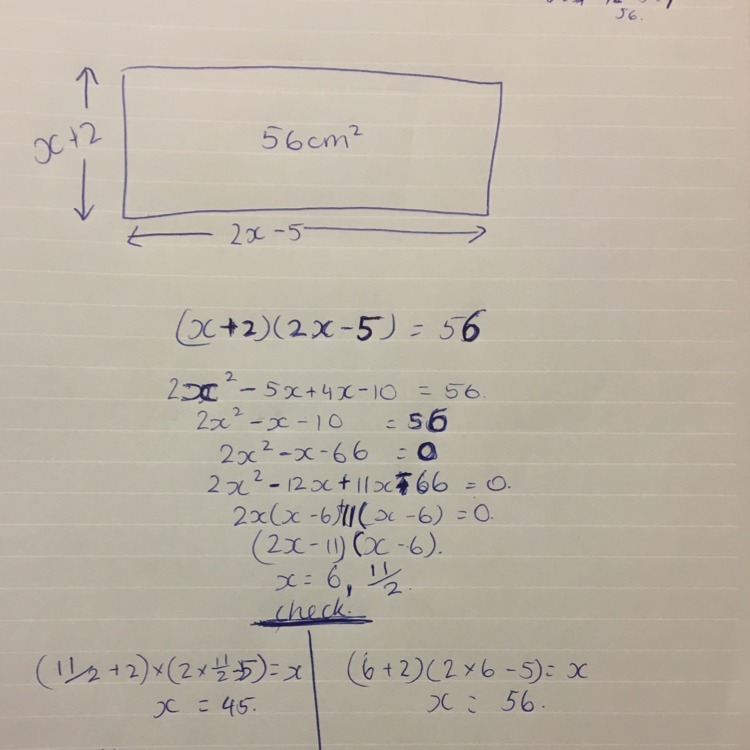 56.
x+2
56cm²
2x-5
(x+2)(2x-5) = 56
2x² - 5x+4x-10 = 56.
2x² - x - 10 = 56
2x² - x - 66 = 0
2x² - 12x + 11x - 66 = 0.
2x(x-6)+11(x-6) = 0.
(2x-11)(x-6).
x = 6, 11/2.
check.
(11/2 +2)×(2× 11/2 -5)=x
x = 45.
(6+2)(2×6-5)= x
x = 56.